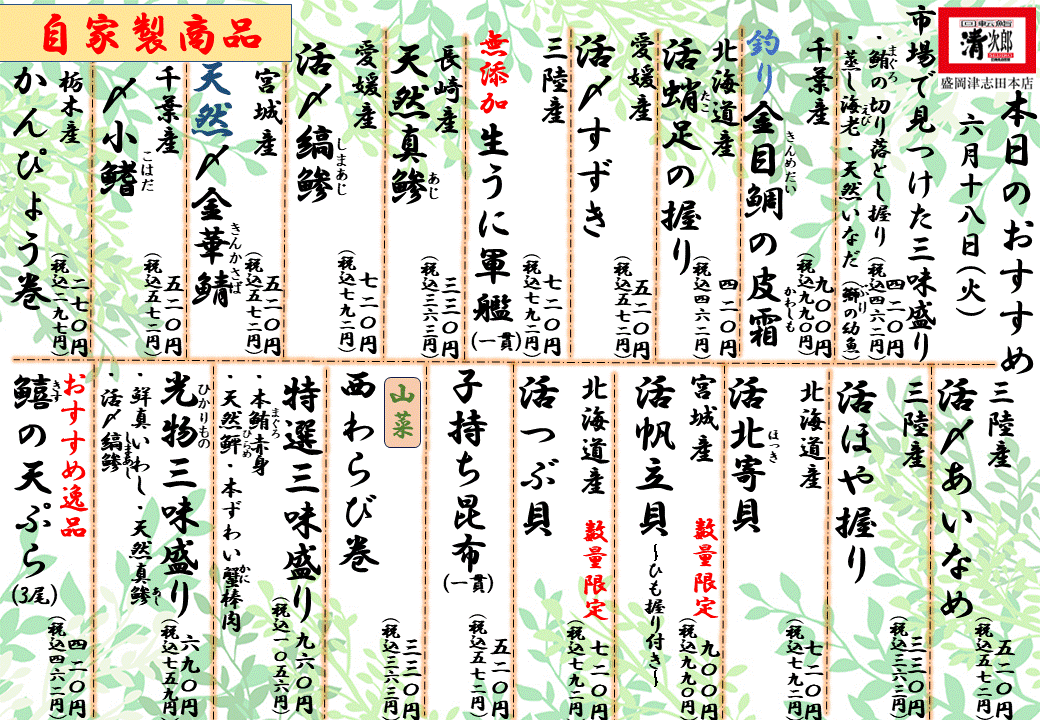 回転鮨
清次郎
盛岡津志田本店
本日のおすすめ
六月十八日(火)
市場で見つけた三味盛り
・鮪の切り落とし握り
まぐろ
・蒸し海老・天然いなだ(鰤の幼魚)
えび
ぶり
四二〇円
(税込四六二円)
千葉産
釣り金目鯛の皮霜
きんめだい
かわしも
九〇〇円
(税込九九〇円)
北海道産
活蛸足の握り
たこ
四二〇円
(税込四六二円)
愛媛産
活〆すずき
五二〇円
(税込五七二円)
三陸産
無添加 生うに軍艦(一貫)
七二〇円
(税込七九二円)
長崎産
天然真鯵
あじ
三三〇円
(税込三六三円)
愛媛産
活〆縞鯵
しまあじ
七二〇円
(税込七九二円)
宮城産
天然〆金華鯖
きんかさば
五二〇円
(税込五七二円)
自家製商品
千葉産
〆小鰭
こはだ
五二〇円
(税込五七二円)
栃木産
かんぴょう巻
二七〇円
(税込二九七円)
三陸産
活〆あいなめ
五二〇円
(税込五七二円)
三陸産
活ほや握り
三三〇円
(税込三六三円)
北海道産
活北寄貝
ほっき
七二〇円
(税込七九二円)
宮城産
数量限定
活帆立貝
~ひも握り付き~
九〇〇円
(税込九九〇円)
北海道産
数量限定
活つぶ貝
七二〇円
(税込七九二円)
子持ち昆布(一貫)
五二〇円
(税込五七二円)
山菜
西わらび巻
三三〇円
(税込三六三円)
特選三味盛り
・本鮪赤身
まぐろ
・天然鮃・本ずわい蟹棒肉
ひらめ
かに
九六〇円
(税込一〇五六円)
光物三味盛り
ひかりもの
・鮮真いわし・天然真鯵
あじ
・活〆縞鯵
しまあじ
六九〇円
(税込七五九円)
おすすめ逸品
鱚の天ぷら(3尾)
きす
四二〇円
(税込四六二円)